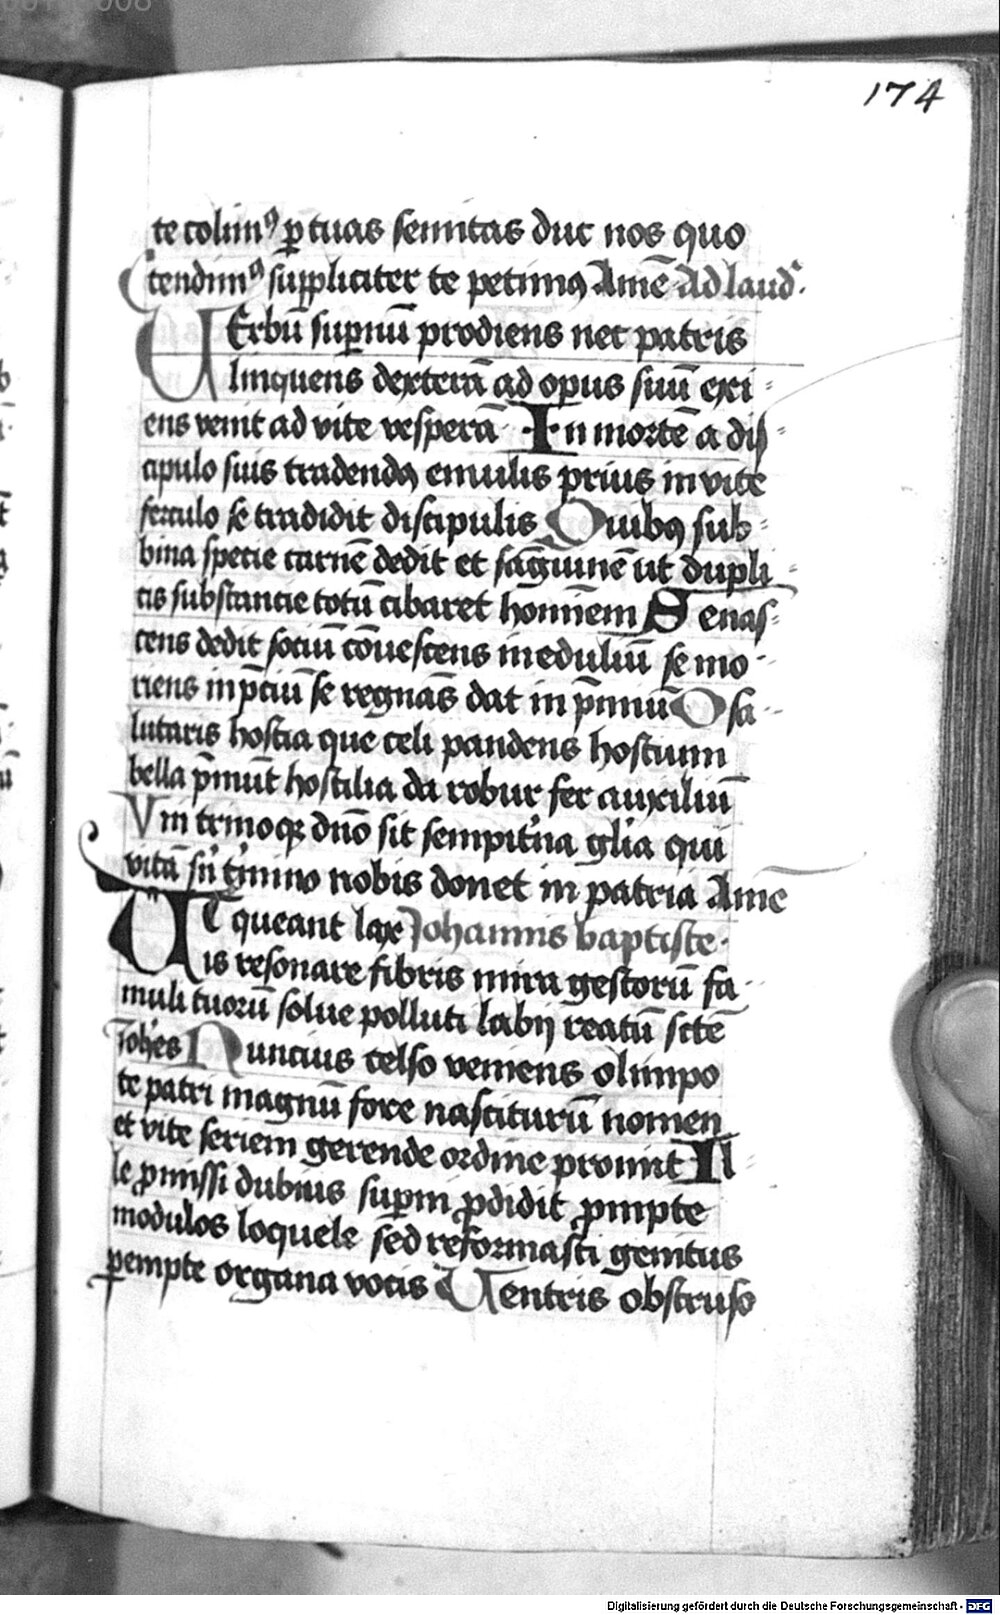 174
te colimꝰ ꝑ tuas semitas duc nos quo
tendimꝰ suppliciter te petimꝰ Amē Ad laud'
UErbū suꝑnū prodiens nec patris
linquens dexterā ad opus suū exi
ens venit ad vite vesperā In mortē a dis
cipulo suis tradendꝰ emulis prius in vite
ferculo se tradidit discipulis Quibꝰ sub
bina specie carnē dedit et sāguinē ut dupli
cis substancie totū cibaret hominem Se nas
cens dedit sociū cōuescens in eduliū se mo
riens in p̄ciū se regnās dat in p̄miū O sa
lutaris hostia que celi pandens hostium
bella p̄mūt hostilia da robur fer auxiliū
Uni trinoqꝫ dn̄o sit sempit'na gl'ia qui
vitā sn̄ t'mino nobis donet in patria Amē
UT queant laxe Johannis baptiste
is resonare fibris mira gestorū fa
muli tuorū solue polluti labij reatū sctē
Joh'es Nuncius celso veniens olimpo
te patri magnū fore nasciturū nomen
et vite seriem gerende ordine promit Il
le ꝓmissi dubius suꝑni ꝑdidit ꝓmpte
modulos loquele sed reformasti genitus
ꝑempte organa vocis Uentris obstruso
Digitalisierung gefördert durch die Deutsche Forschungsgemeinschaft - DFG